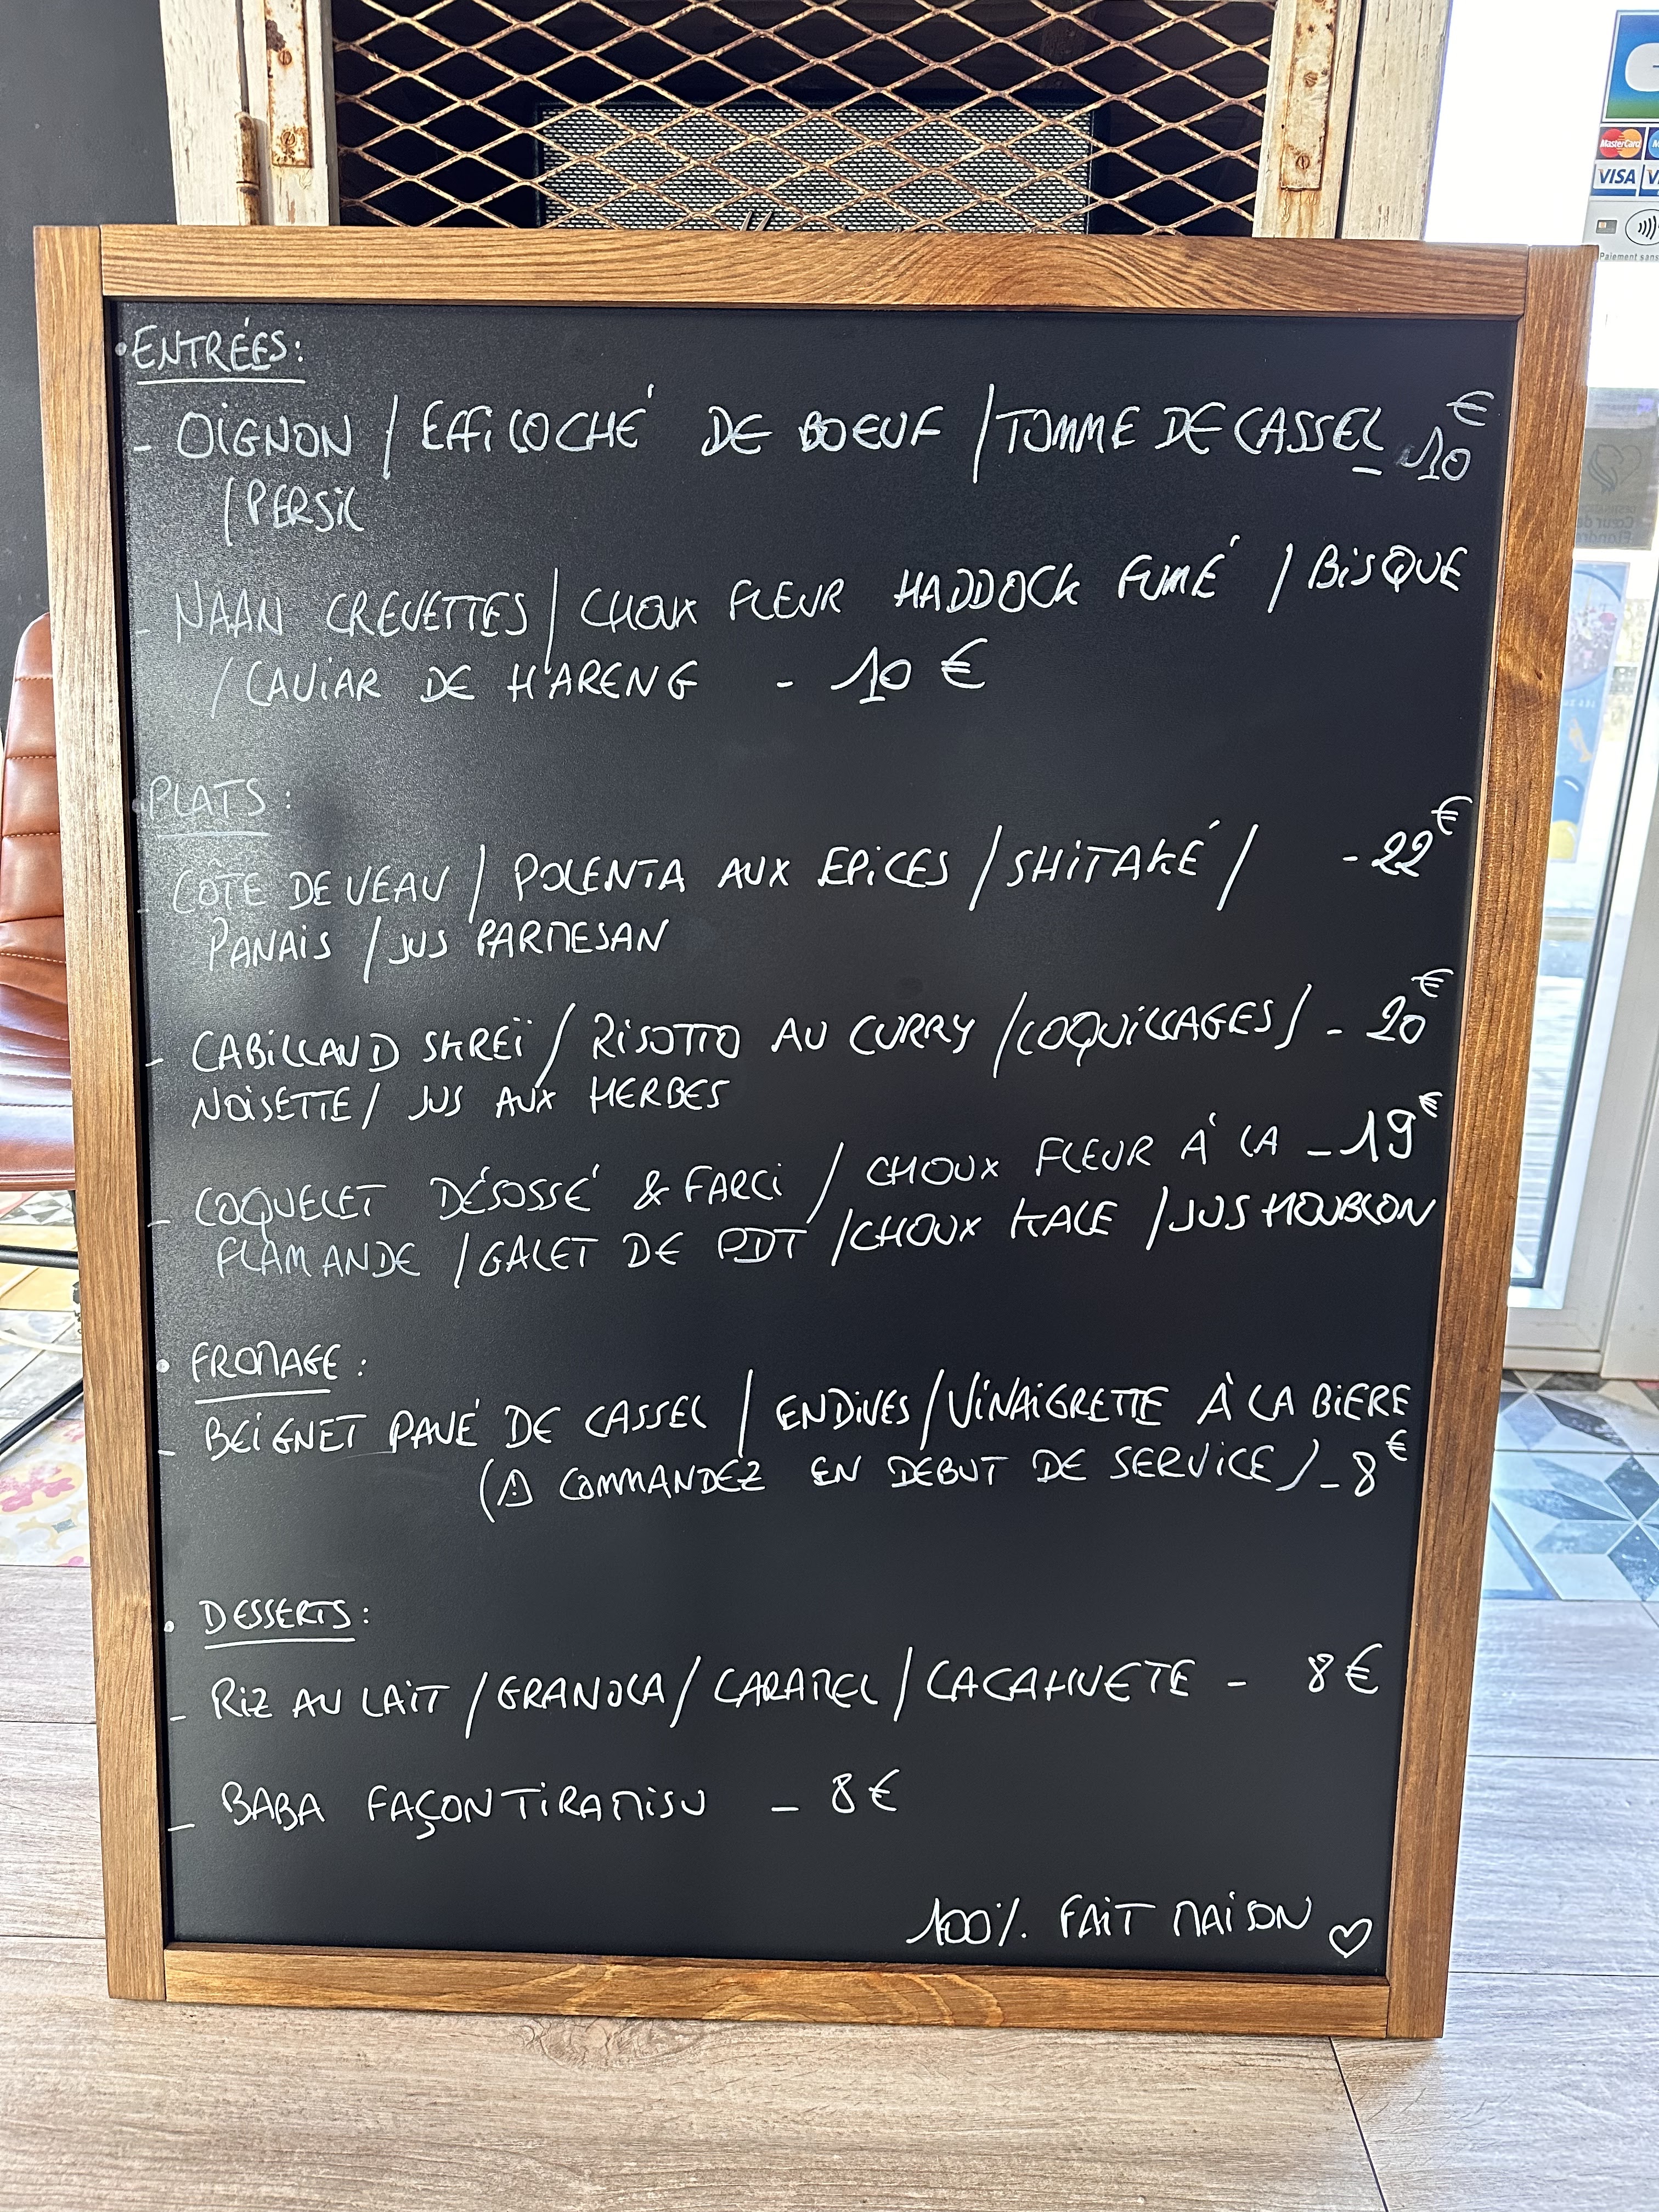 • ENTRÉES:
- OIGNON / EFFILOCHÉ DE BOEUF / TOMME DE CASSEL - 10€
/ PERSIL
- NAAN CREVETTES / CHOUX FLEUR HADDOCK FUMÉ / BISQUE
/ CAVIAR DE HARENG - 10 €
• PLATS :
- CÔTE DE VEAU / POLENTA AUX EPICES / SHITAKÉ / - 22€
PANAIS / JUS PARMESAN
- CABILLAUD SKREÏ / RISOTTO AU CURRY / COQUILLAGES / - 20€
NOISETTE / JUS AUX HERBES
- COQUELET DÉSOSSÉ & FARCI / CHOUX FLEUR À LA - 19€
FLAMANDE / GALET DE PDT / CHOUX KALE / JUS HOUBLON
• FROMAGE :
- BEIGNET PAVÉ DE CASSEL / ENDIVES / VINAIGRETTE À LA BIERE
(⚠ COMMANDEZ EN DEBUT DE SERVICE) - 8€
• DESSERTS :
- RIZ AU LAIT / GRANOLA / CARAMEL / CACAHUETE - 8€
- BABA FAÇON TIRAMISU - 8€
100% FAIT MAISON ♡
MasterCard
VISA
Paiement sans